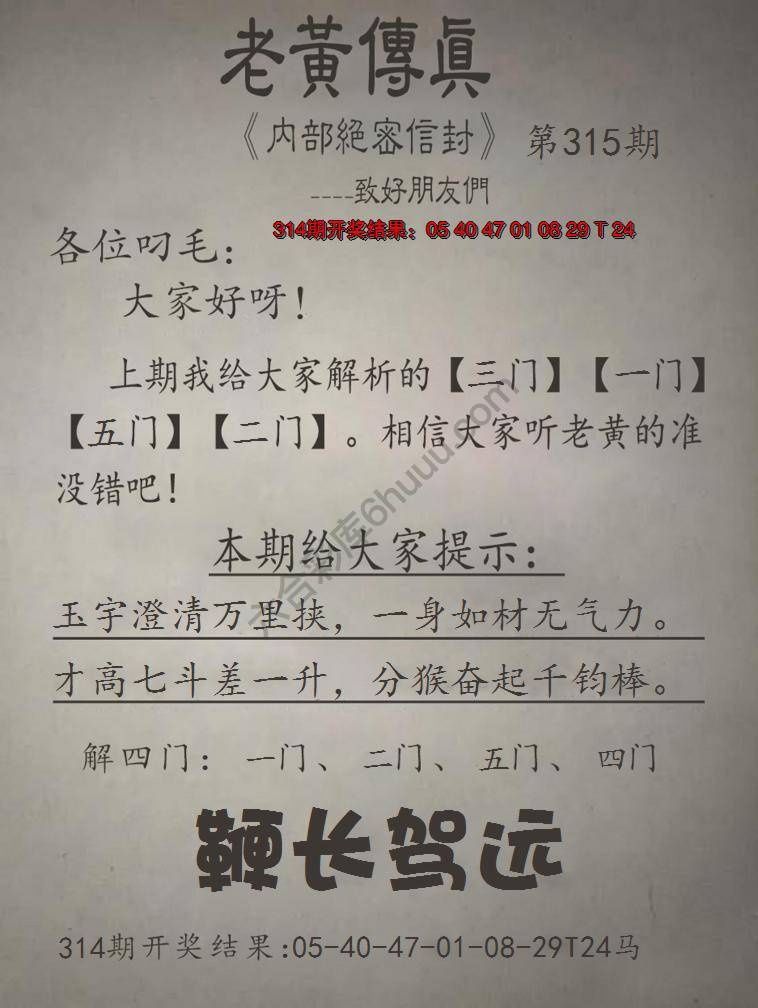 老黃傳眞
《内部絕密信封》 第315期
----致好朋友們
314期开奖结果：05 40 47 01 08 29 T 24
各位叼毛：
大家好呀！
上期我给大家解析的【三门】【一门】
【五门】【二门】。相信大家听老黄的准
没错吧！
本期给大家提示：
玉宇澄清万里挟，一身如材无气力。
才高七斗差一升，分猴奋起千钧棒。
解四门： 一门、 二门、 五门、 四门
鞭长驾远
314期开奖结果:05-40-47-01-08-29T24马
六合彩库6huuu.com